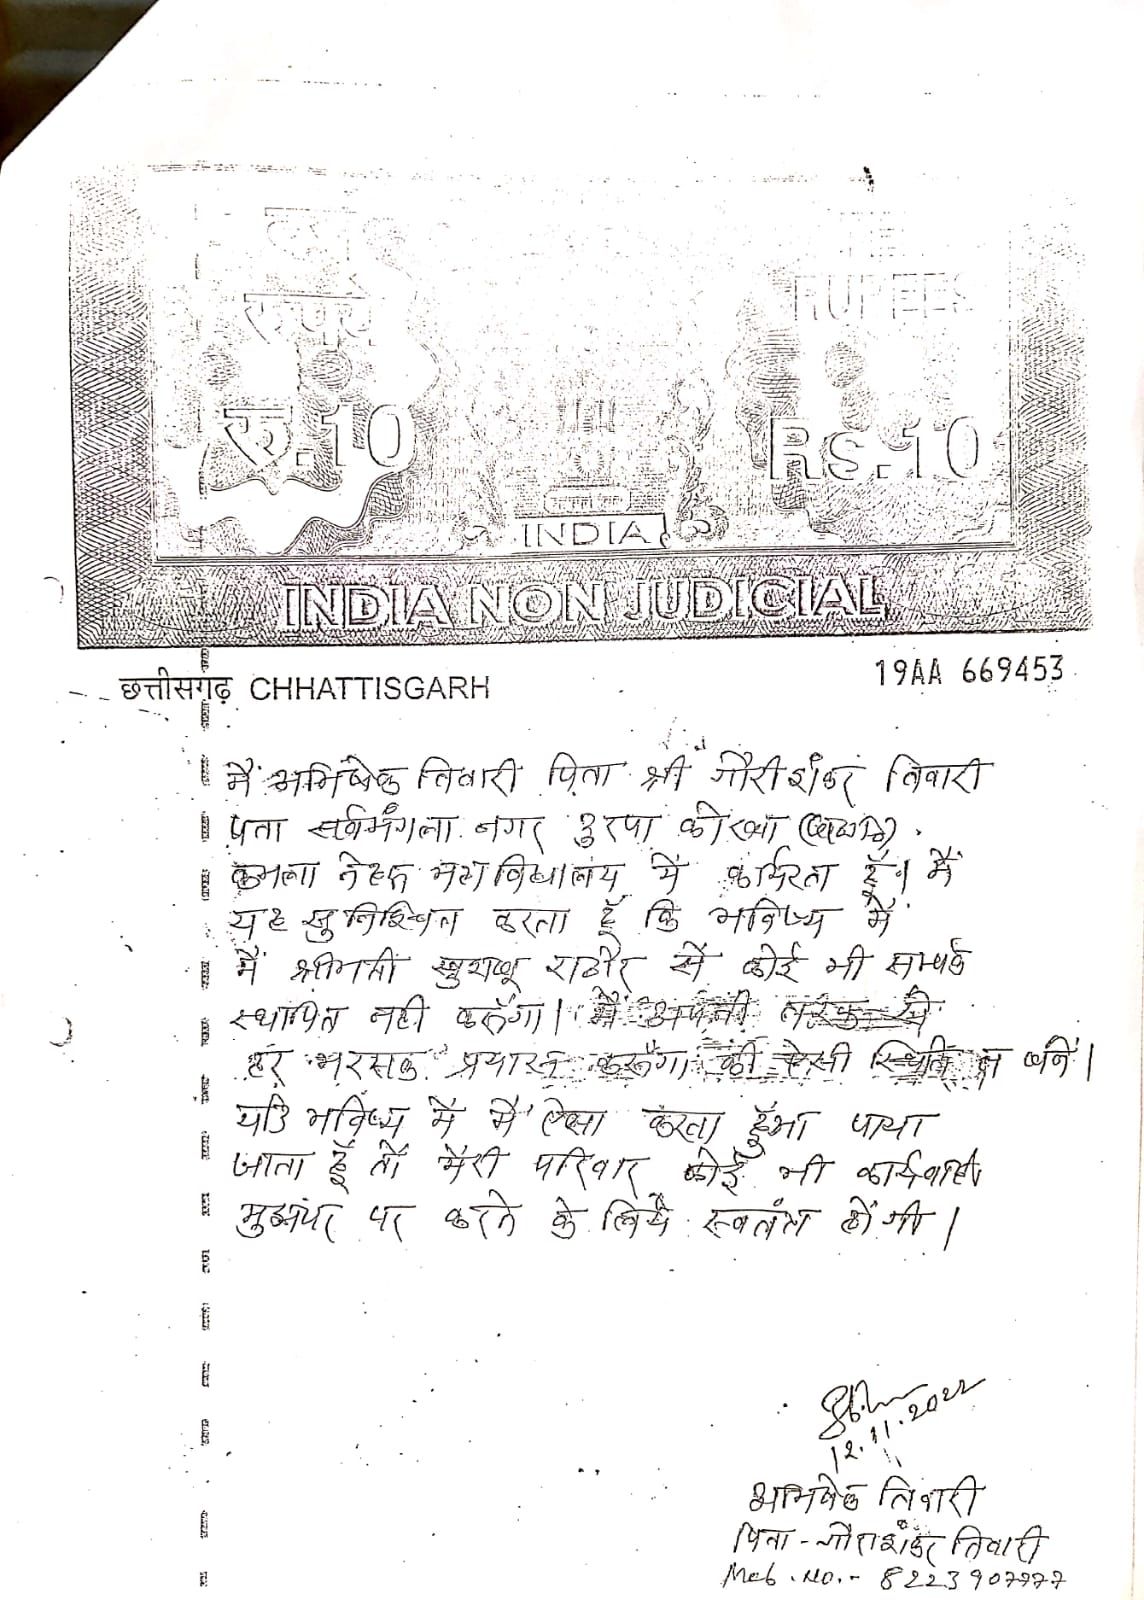 रूपये
RUPEES
रु.10
Rs.10
INDIA
INDIA NON JUDICIAL
छत्तीसगढ़ CHHATTISGARH
19AA 669453
मैं अभिषेक तिवारी पिता श्री गौरीशंकर तिवारी
पता सर्वमंगला नगर दुरपा कोरबा
कमला नेहरू महाविद्यालय में कार्यरत हूँ। मैं
यह सुनिश्चित करता हूँ कि भविष्य में
मैं श्रीमती खुशबू राठौर से कोई भी सम्पर्क
स्थापित नही करूँगा। मैं अपनी तरफ से
हर भरसक प्रयास करूँगा की ऐसी स्थिति न बने।
यदि भविष्य में मैं ऐसा करता हुँआ पाया
जाता हूँ तो मेरी परिवार कोई भी कार्यवाही
मुझपर पर करने के लिये स्वतंत्र होंगी।
12.11.2022
अभिषेक तिवारी
पिता - गौरीशंकर तिवारी
Mob. No. - 8223907777